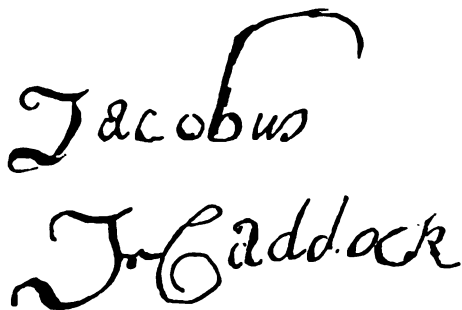 Jacobus
Jn Caddock